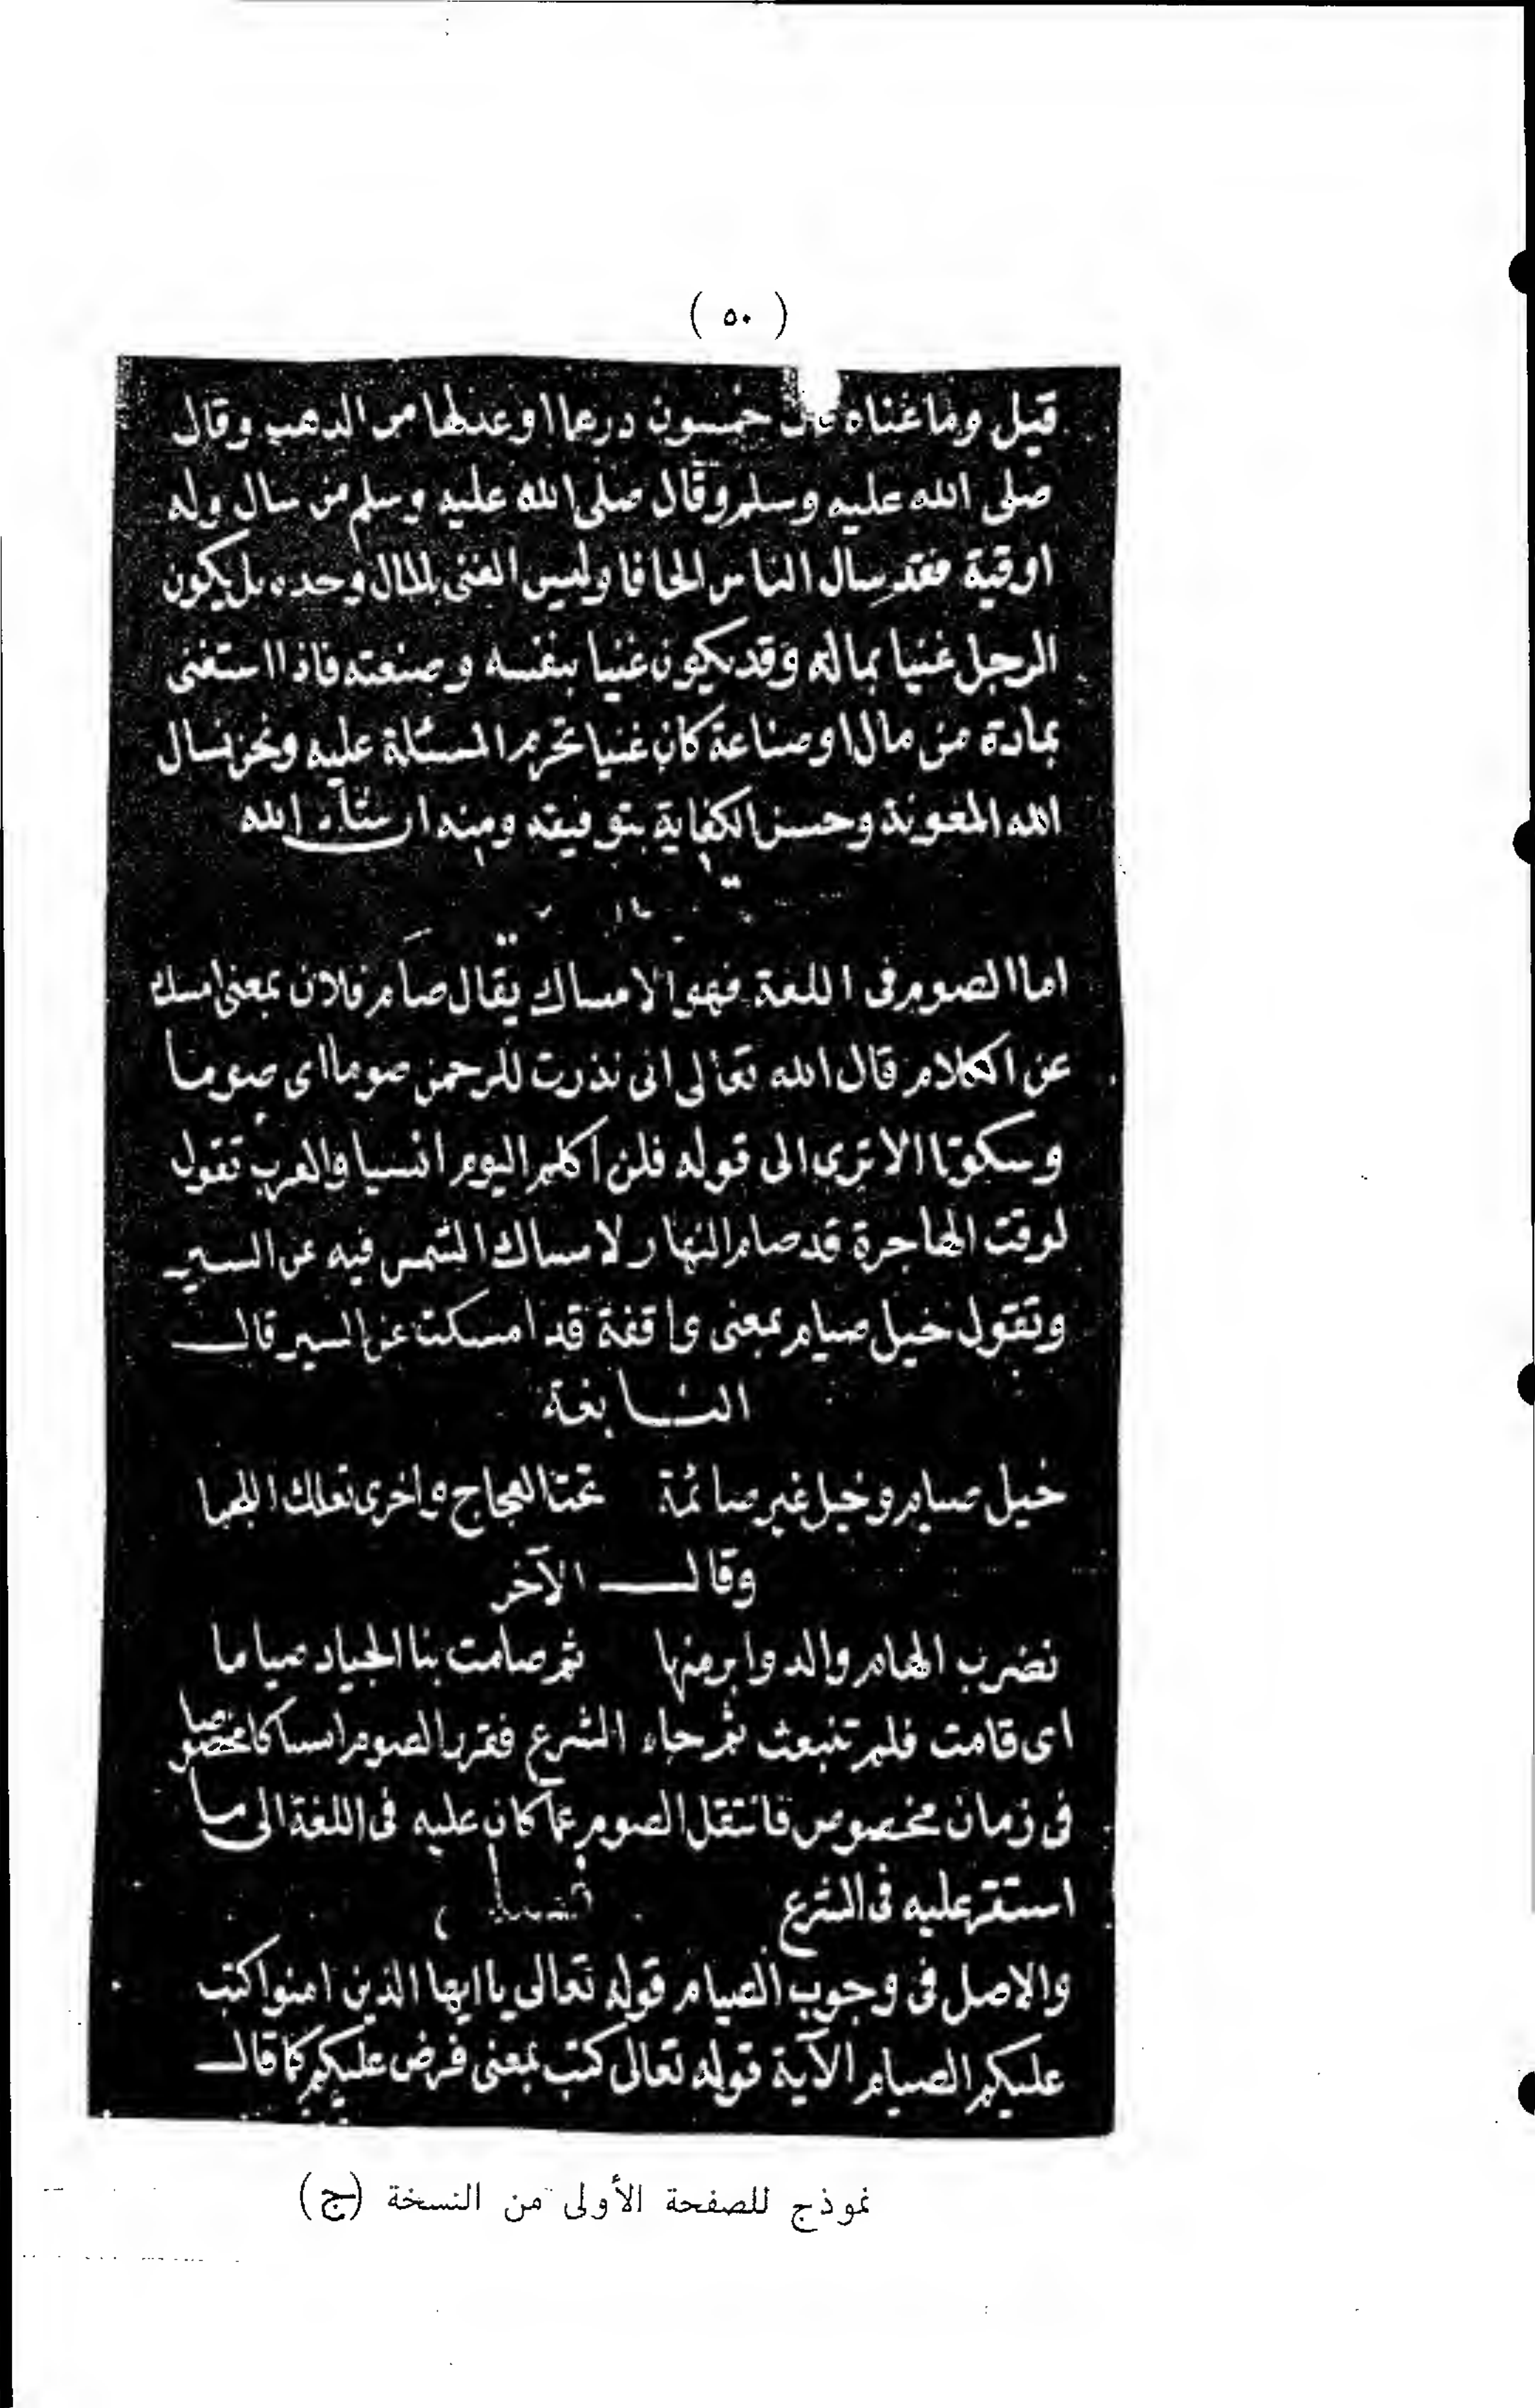 ( ٥٠ )
قيل وما غناه قال خمسون درهما او عدلها من الذهب وقال
صلى الله عليه وسلم وقال صلى الله عليه وسلم من سال وله
اوقية فقد سال الناس الحافا وليس الغنى بالمال وحده بل يكون
الرجل غنيا بماله وقد يكون غنيا بنفسه وصنعته فاذا استغنى
بمادة من مال او صناعة كان غنيا تحرم المسئلة عليه ونحن نسال
الله المعونة وحسن الكفاية بتوفيقه ومنه ان شاء الله
اما الصوم فى اللغة فهو الامساك يقال صام فلان بمعنى امسك
عن الكلام قال الله تعالى انى نذرت للرحمن صوما اى صوما
وسكوتا الا ترى الى قوله فلن اكلم اليوم انسيا والعرب تقول
لوقت الهاجرة قد صام النهار لامساك الشمس فيه عن السير
وتقول خيل صيام بمعنى واقفة قد امسكت عن السير قال
النابغة
خيل صيام وخيل غير صائمة تحت العجاج واخرى تعلك اللجما
وقال الآخر
نضرب الهام والدوابر منها ثم صامت بنا الجياد صياما
اى قامت فلم تنبعث ثم جاء الشرع فقرر الصوم امساكا مخصوصا
فى زمان مخصوص فانتقل الصوم عما كان عليه فى اللغة الى ما
استقر عليه فى الشرع فصل
والاصل فى وجوب الصيام قوله تعالى يا ايها الذين امنوا كتب
عليكم الصيام الآية قوله تعالى كتب بمعنى فرض عليكم كما قال
نموذج للصفحة الأولى من النسخة (ج)